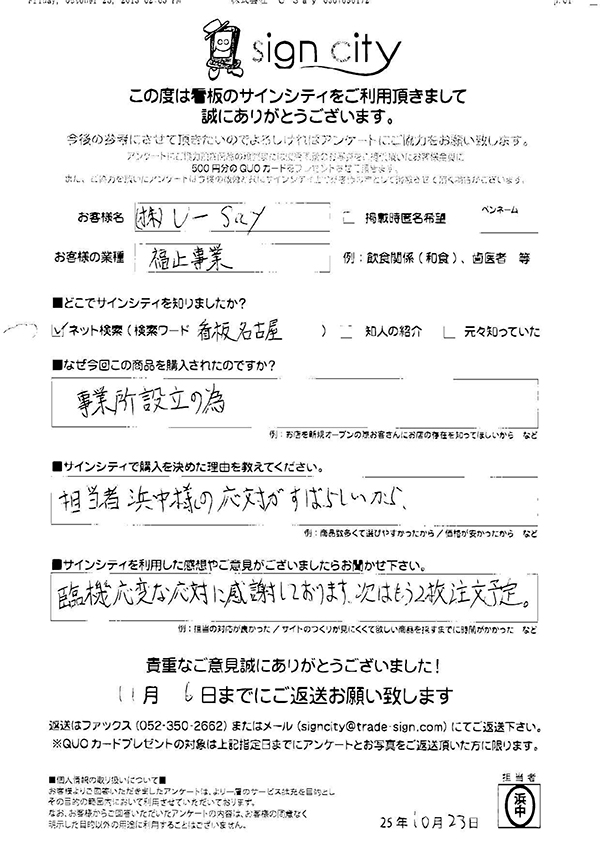 sign city
この度は看板のサインシティをご利用頂きまして
誠にありがとうございます。
今後の参考にさせて頂きたいのでよろしければアンケートにご協力をお願い致します。
500円分のQUOカードをプレゼントさせて頂きます。
お客様名 (株) U-Say 掲載時匿名希望 ペンネーム
お客様の業種 福祉事業 例：飲食関係（和食）、歯医者 等
■どこでサインシティを知りましたか？
ネット検索（検索ワード 看板 名古屋 ） 知人の紹介 元々知っていた
■なぜ今回この商品を購入されたのですか？
事業所設立の為
例：お店を新規オープンの為お客さんにお店の存在を知ってほしいから など
■サインシティで購入を決めた理由を教えてください。
担当者 浜中様の応対がすばらしいから、
例：商品数多くて選びやすかったから／価格が安かったから など
■サインシティを利用した感想やご意見がございましたらお聞かせ下さい。
臨機応変な応対に感謝しております。次はもう2枚注文予定。
例：担当の対応が良かった／サイトのつくりが見にくくて欲しい商品を探すまでに時間がかかった など
貴重なご意見誠にありがとうございました！
11月 6日までにご返送お願い致します
返送はファックス（052-350-2662）またはメール（signcity@trade-sign.com）にてご返送下さい。
※QUOカードプレゼントの対象は上記指定日までにアンケートとお写真をご返送頂いた方に限ります。
■個人情報の取り扱いについて■
お客様よりご回答いただきましたアンケートは、より一層のサービス拡充を目的とし
その目的の範囲内において利用させていただいております。
なお、お客様からご回答いただいたアンケートの内容は、お客様の同意なく
明示した目的以外の用途に利用することはございません。
担当者
浜中
25年10月23日